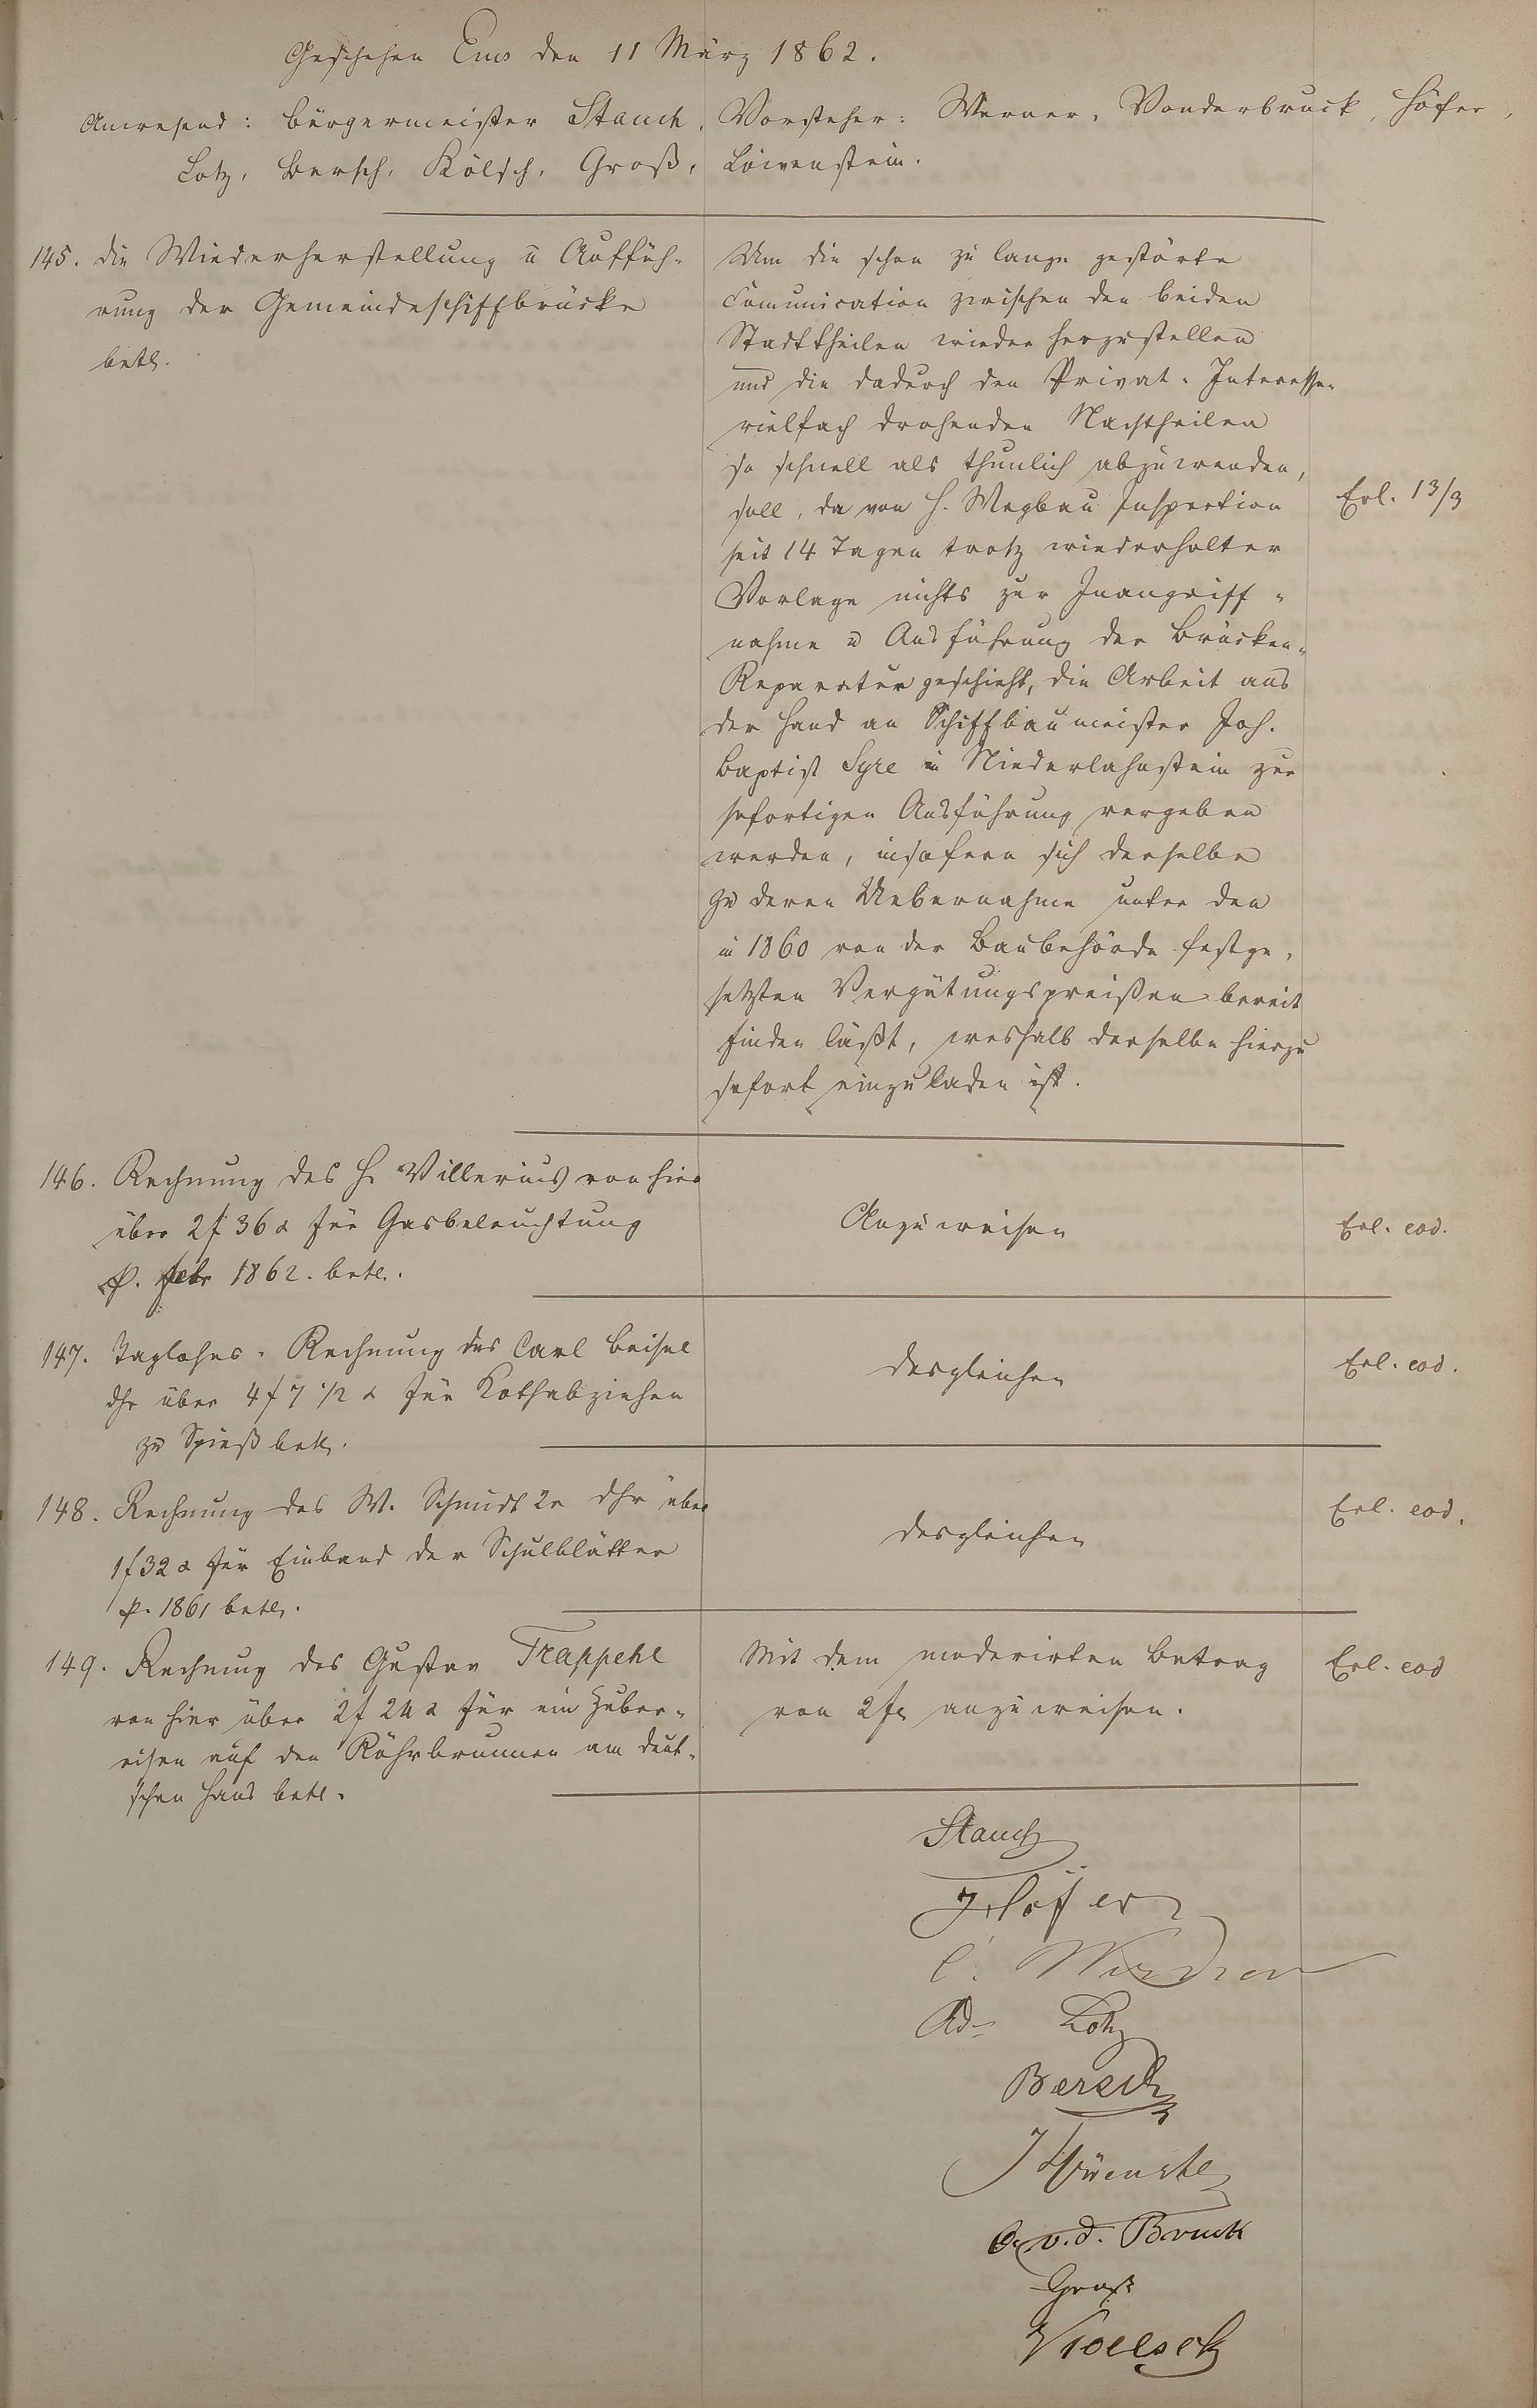 Geschehen Ems den 11 März 1862.
Anwesend: Bürgermeister Stauch, Vorsteher: Werner, Vonderbruck, Höfer,
Lotz, Bersch, Kölsch, Groß, Löwenstein.
145. die Wiederherstellung u Auffüh-
rung der Gemeindeschiffbrücke
betr.
Um die schon zu lange gestörte
Comunication zwischen den beiden
Stadttheilen wieder herzustellen
und die dadurch den Privat-Interessen
vielfach drohenden Nachtheilen
so schnell als thunlich abzuwenden,
soll, da von H. Wegbau Inspection
seit 14 Tagen trotz wiederholter
Vorlage nichts zur Inangriff-
nahme u Ausführung der Brücken-
Reparatur geschieht, die Arbeit aus
der Hand an Schiffbaumeister Joh.
Baptist Syre in Niederlahnstein zur
sofortigen Ausführung vergeben
werden, insofern sich derselbe
zu deren Uebernahme unter den
in 1860 von der Baubehörde festge-
setzten Vergütungspreißen bereit
finden läßt, weshalb derselbe hierzu
sofort einzuladen ist.
Erl. 13/3
146. Rechnung des H. Villerius von hier
über 2f 36 x für Gasbeleuchtung
p. febr 1862. betr.
Anzuweisen
Erl. eod.
147. Taglohns-Rechnung des Carl Beisel
dhr über 4f 7 1/2 x für Kothabziehen
zu Spieß betr.
desgleichen
Erl. eod.
148. Rechnung des W. Schmidt 2r dhr über
1f 32 x für Einband der Schulblätter
p. 1861 betr.
desgleichen
Erl. eod.
149. Rechnung des Gustav Trappehl
von hier über 2f 24 x für ein Zuber-
eisen auf den Röhrbrunnen am deut-
schen Haus betr.
Mit dem moderirten Betrag
von 2 fl anzuweisen.
Erl. eod
Stauch
J. Höfer
C. Werner
Ad. Lotz
Bersch
J Löwenste
C. v. d. Bruck
Groß
Koelsch